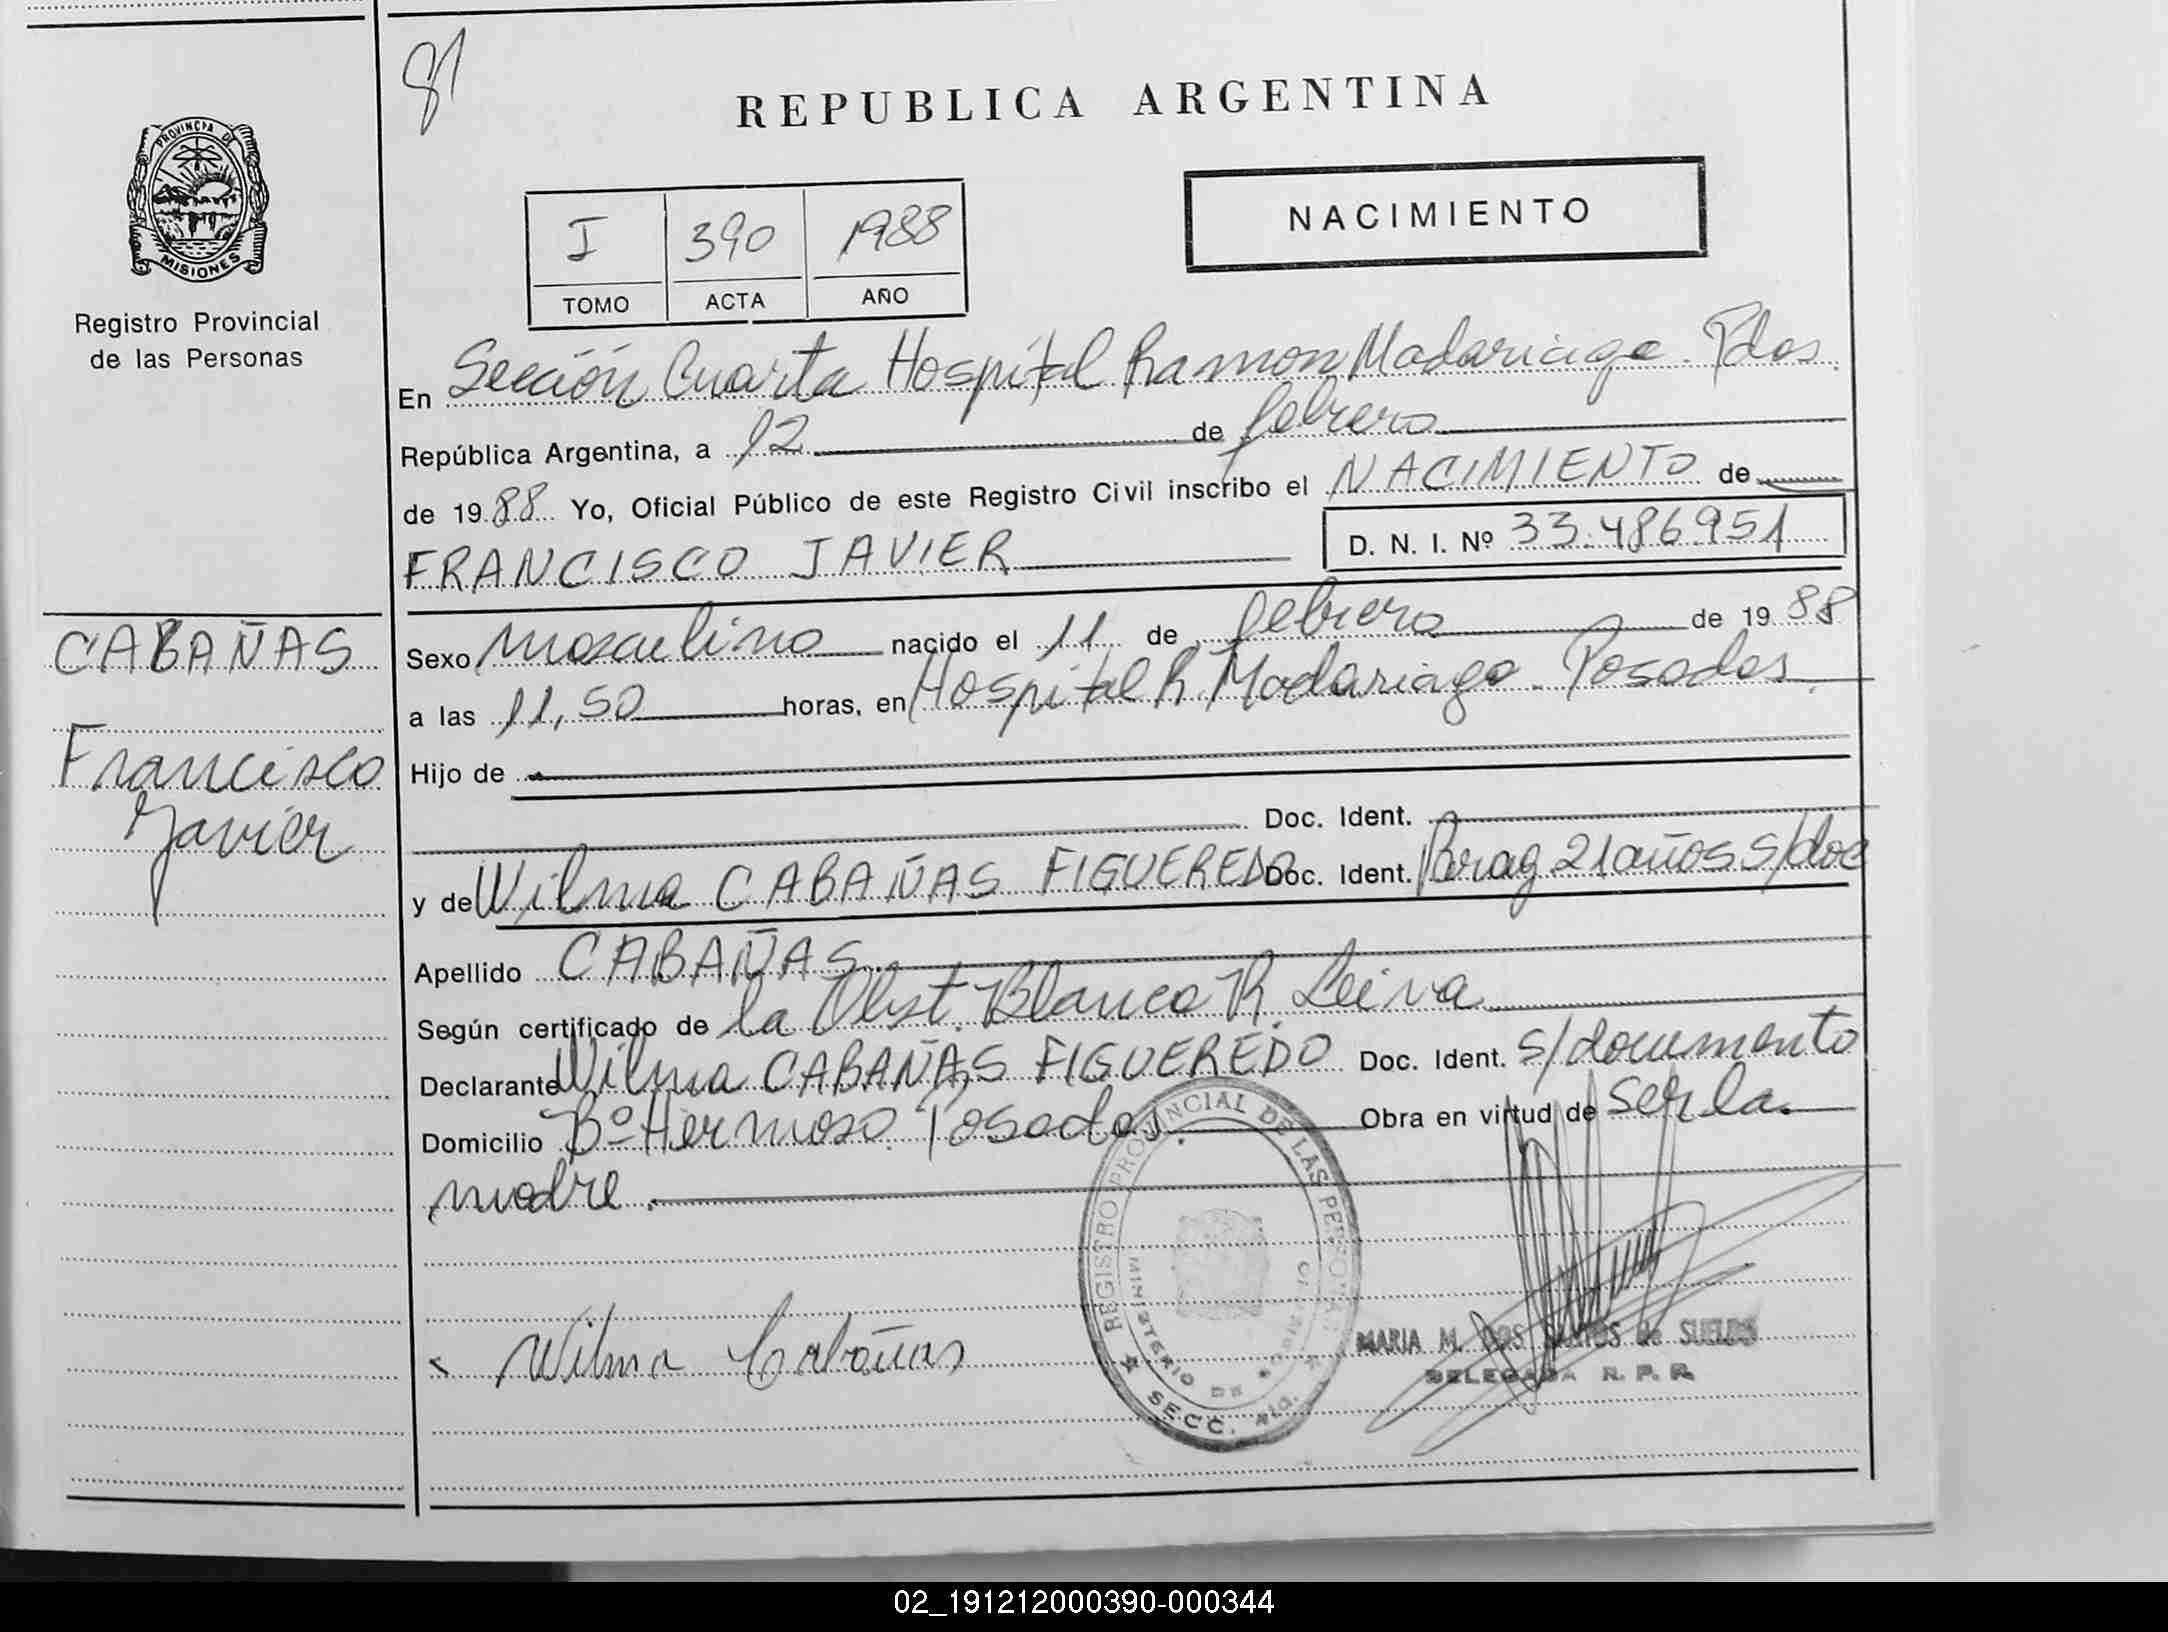 81
REPUBLICA ARGENTINA
PROVINCIA DE
MISIONES
Registro Provincial
de las Personas
NACIMIENTO
I 390 1988
TOMO ACTA AÑO
En Sección Cuarta Hospital Ramon Madariaga. Pdas.
República Argentina, a 12 de febrero
de 1988 Yo, Oficial Público de este Registro Civil inscribo el NACIMIENTO de
FRANCISCO JAVIER D. N. I. Nº 33.486.951
CABAÑAS
Francisco
Javier
Sexo masculino nacido el 11 de febrero de 1988
a las 11,50 horas, en Hospital R. Madariaga. Posadas.
Hijo de
Doc. Ident.
y de Wilma CABAÑAS FIGUEREDO Doc. Ident. Parag 21 años s/doc
Apellido CABAÑAS
Según certificado de la Obst. Blanca R. Leiva
Declarante Wilma CABAÑAS FIGUEREDO Doc. Ident. s/documento
Domicilio Bº Hermoso. Posadas. Obra en virtud de ser la
madre.
REGISTRO PROVINCIAL DE LAS PERSONAS
MINISTERIO DE
SECC. 4ta.
Wilma Cabañas
MARIA M. DOS SANTOS de SUELDO
DELEGADA R. P. P.
02_191212000390-000344